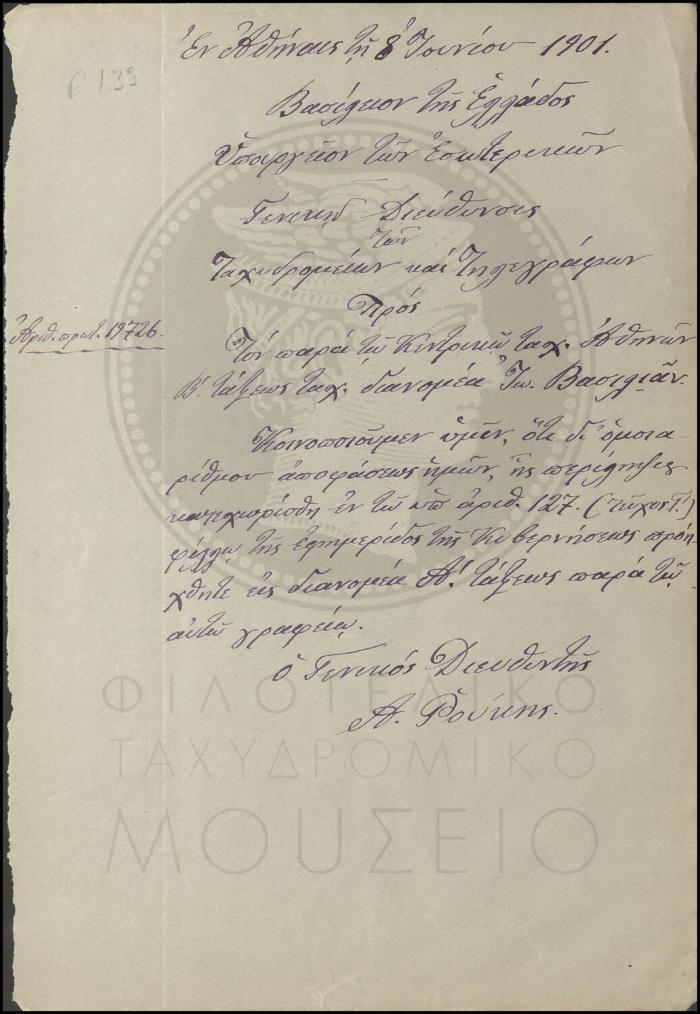 Ἐν Ἀθήναις τῇ 8 Ἰουνίου 1901.
Γ 1.39
Βασίλειον τῆς Ἑλλάδος
Ὑπουργεῖον τῶν Ἐσωτερικῶν
Γενικὴ Διεύθυνσις
τῶν
Ταχυδρομείων καὶ Τηλεγράφων
Πρὸς
Ἀριθ. πρωτ. 19726
Τὸν παρὰ τῷ Κεντρικῷ ταχ. Ἀθηνῶν
Β′. τάξεως ταχ. διανομέα Ἰω.
Κοινοποιοῦμεν ὑμῖν, ὅτι δι' ὁμοια
ρίθμου ἀποφάσεως ἡμῶν, ἧς περίληψις
κατεχωρίσθη ἐν τῷ ὑπ' ἀριθ. 127. (τεῦχος Γ′.)
φύλλῳ τῆς Ἐφημερίδος τῆς Κυβερνήσεως προή
χθητε εἰς διανομέα Α′. τάξεως παρὰ τῷ
αὐτῷ γραφείῳ.
ὁ Γενικὸς Διευθυντὴς
Α. Ῥούκης.
ΦΙΛΟΤΕΛΙΚΟ
ΤΑΧΥΔΡΟΜΙΚΟ
ΜΟΥΣΕΙΟ